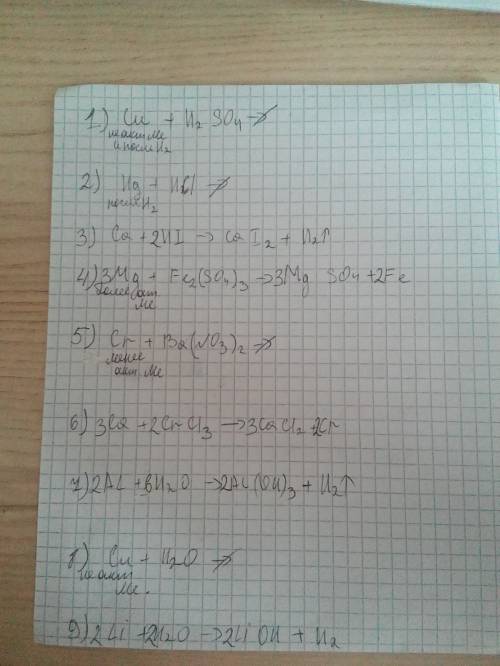 1) Cu + H₂SO₄ ↛
неакт Ме
и после H₂
2) Hg + HCl ↛
после H₂
3) Ca + 2HI → CaI₂ + H₂↑
4) 3Mg + Fe₂(SO₄)₃ → 3MgSO₄ + 2Fe
более акт.
Ме
5) Cr + Ba(NO₃)₂ ↛
менее
акт. Ме
6) 3Ca + 2CrCl₃ → 3CaCl₂ + 2Cr
7) 2Al + 6H₂O → 2Al(OH)₃ + H₂↑
8) Cu + H₂O ↛
не акт
Ме.
9) 2Li + 2H₂O → 2LiOH + H₂